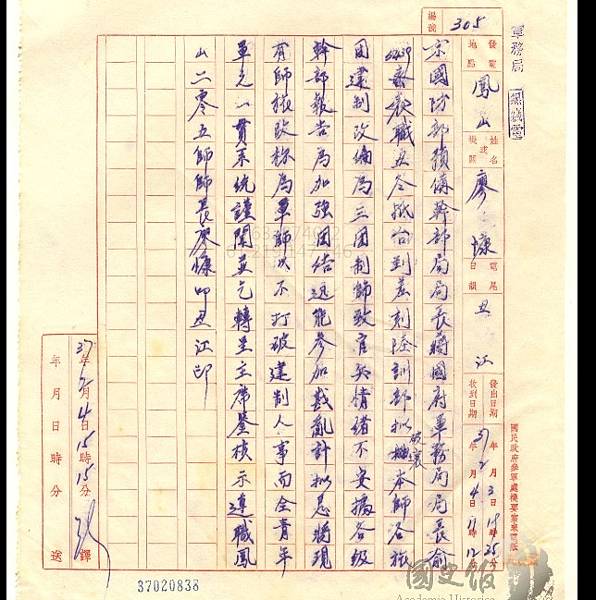 軍務局
機祕書
編號 305
發電地點 鳳山
姓名或機關 廖慷
電尾日韻 丑江
發出日期 37年2月3日19時25分
收到日期 年2月4日11時12分
國民政府參軍處機要室來電紙
京國防部預備幹部局局長蔣國府軍務局局長俞
5439 泰教職丑冬抵台到差刻陸訓部擬破壞本師各旅
團建制改編為三團制師致官兵情緒不安據各級
幹部報告為加強團結迅能參加戡亂計擬懇將現
有師旅改稱為軍師以不打破建制人事而全青年
軍光一貫系統謹聞並乞轉呈主席鑒核示遵職鳳
山二零五師師長廖慷叩丑江印
37年2月4日15時15分 譯
年月日時分 送
37020838
國史館
Academia Historica